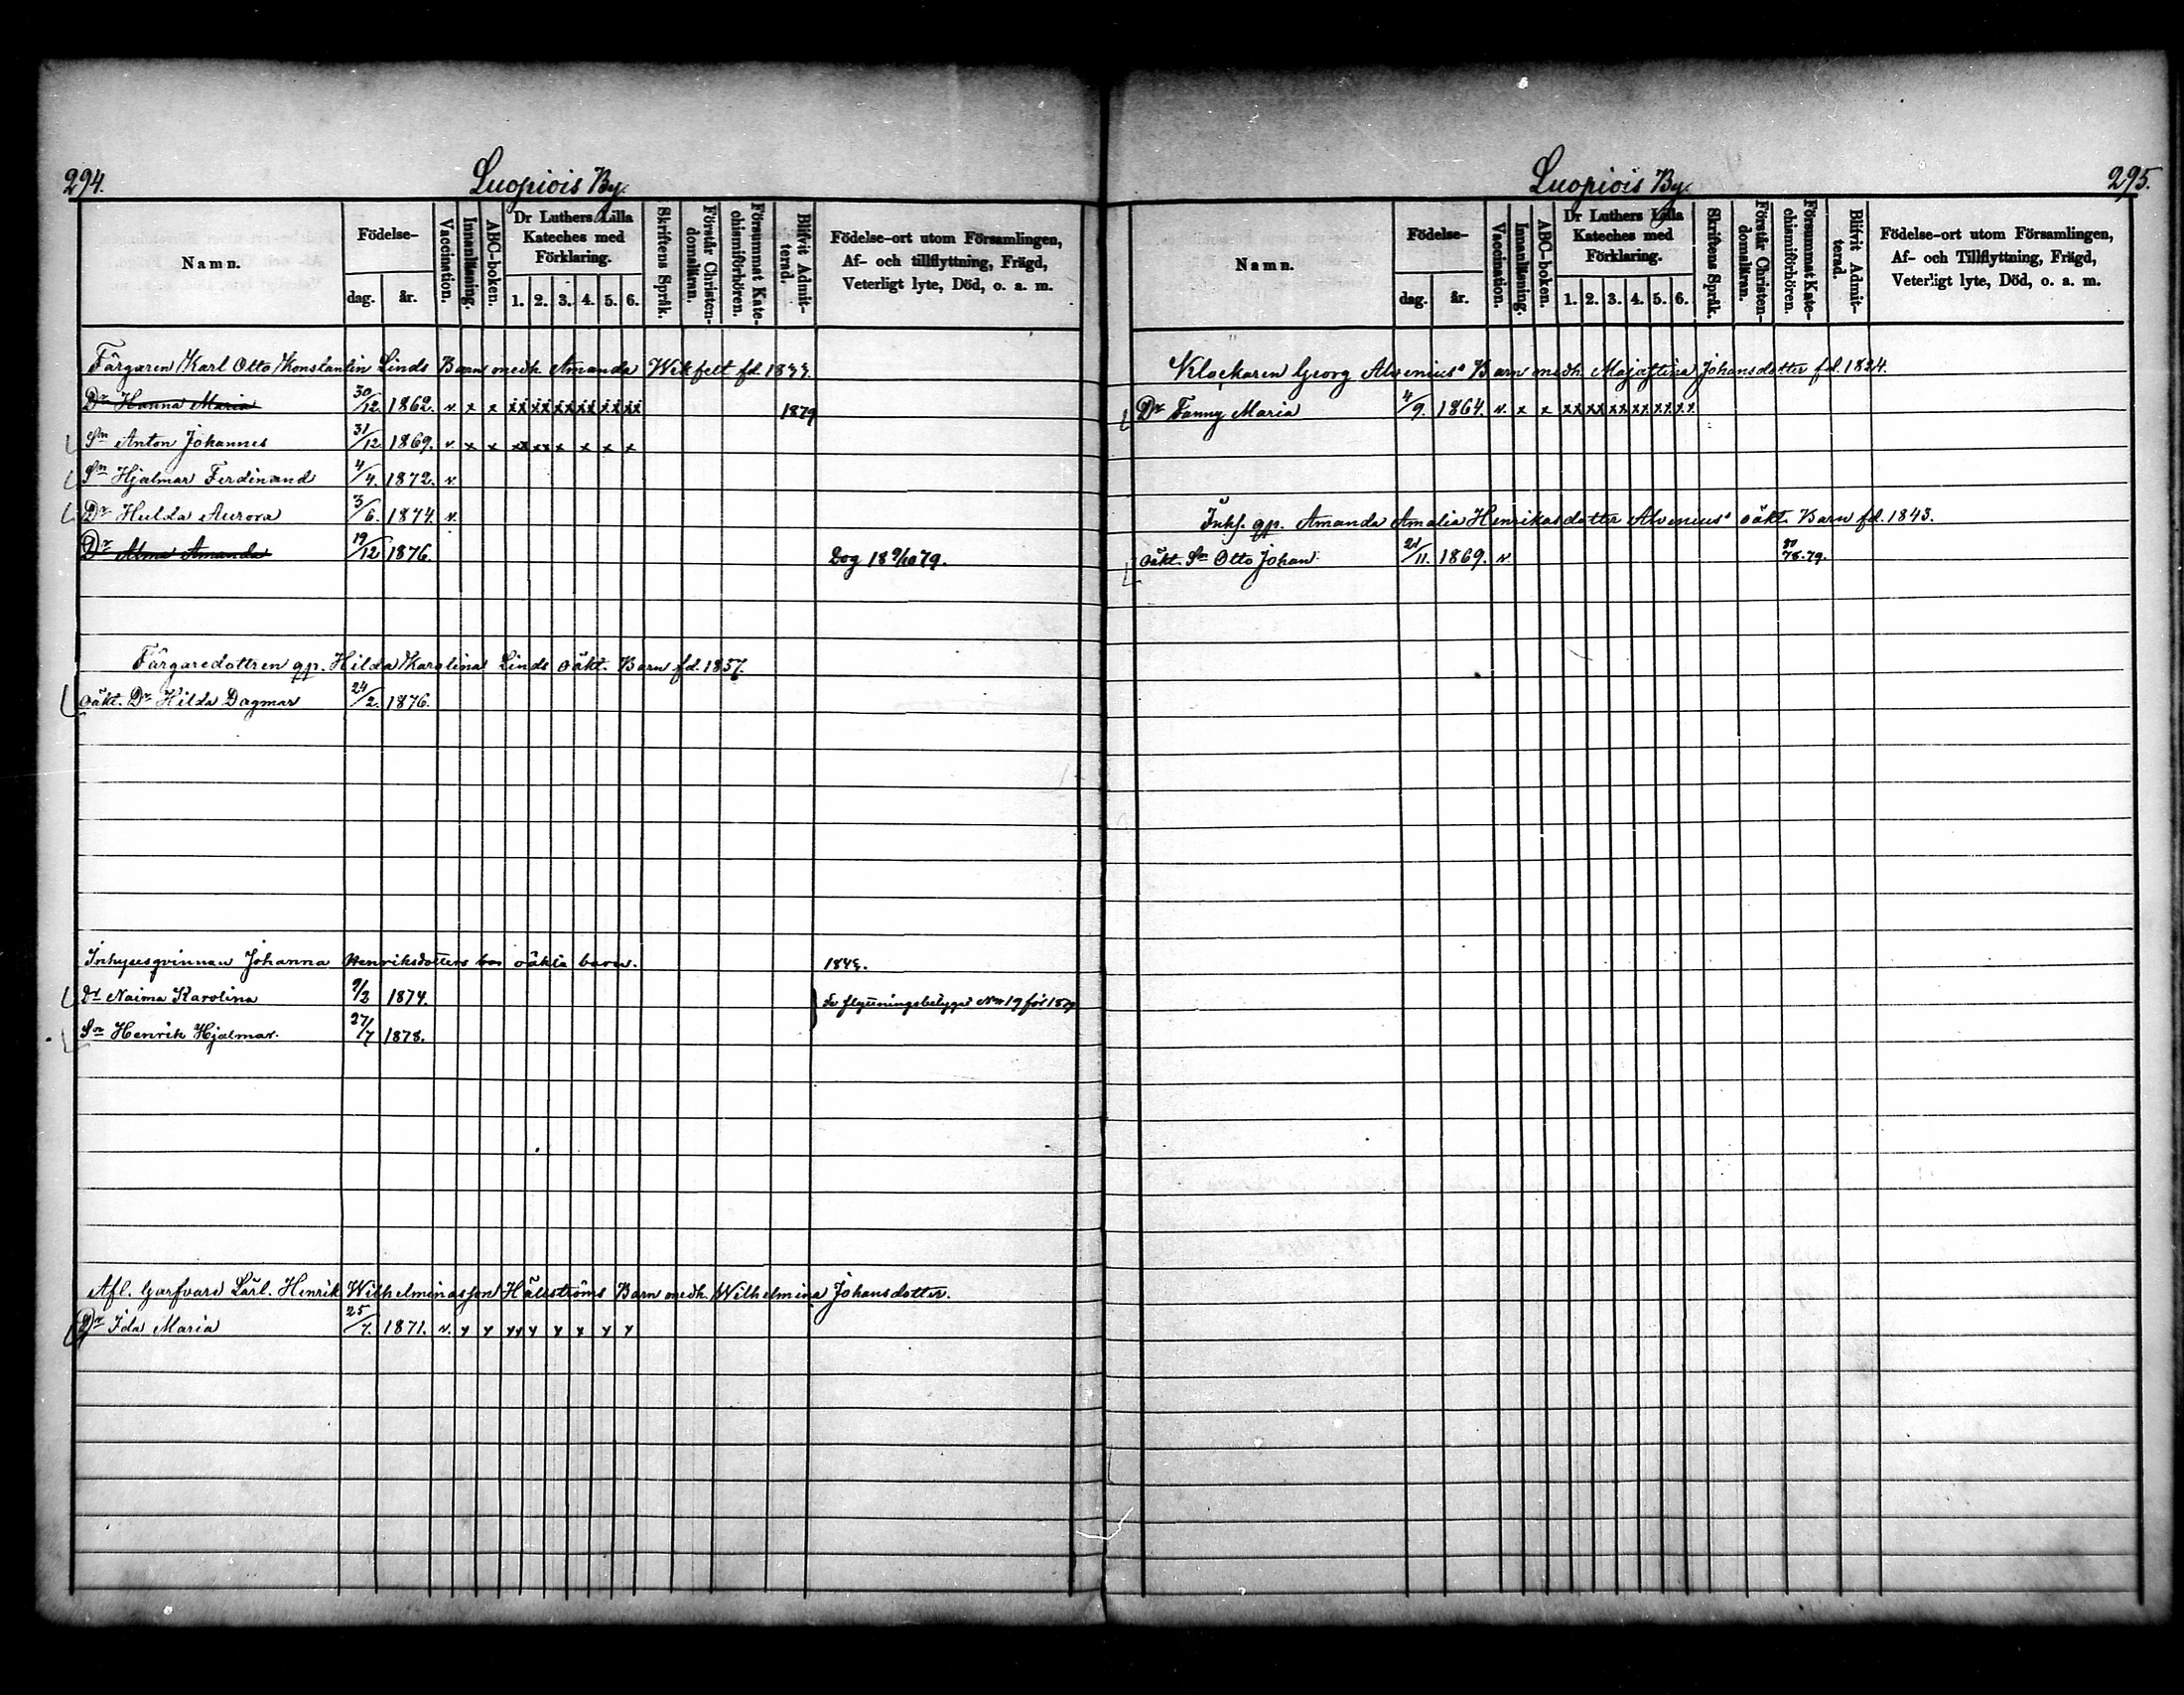 294.
Luopiois By.
Namn.
Födelse-
dag.
år.
Vaccination.
Innanläsning.
ABC-boken.
Dr Luthers Lilla Kateches med Förklaring.
1. 2. 3. 4. 5. 6.
Skriftens Språk.
Förstår Christen-domsläran.
Försummat Kate-chismiförhören.
Blifvit Admit-terad.
Födelse-ort utom Församlingen,
Af- och tillflyttning, Frägd,
Veterligt lyte, Död, o. a. m.
Färgaren Karl Otto Konstantin Linds Barn med h. Amanda Wikfelt fd.
Dr Hanna Maria 30/12. 1862. v. x x xx xx xx xx xx xx 1879
Sn Anton Johannes 31/12 1869. v x x xx xx x x x x
Sn Hjalmar Ferdinand 4/4. 1872. v.
Dr Hulda Aurora 3/6. 1874. v.
Dr Alma Amanda 19/12 1876. Dog 18 9/10 79.
Färgaredottren qp. Hilda Karolina Linds oäkt. Barn fd. 1857.
oäkt. Dr Hilda Dagmar 24/2. 1876.
Inhysesqvinnan Johanna Henriksdotters oäkta barn.
Dr Naima Karolina 9/3 1874. Se flyttningsbetyget No 19 för 1879
Sn Henrik Hjalmar. 27/7 1878.
Afl. Garfvare Lärl. Henrik Wilhelminasson Hällströms Barn med h. Wilhelmina Johansdotter.
Dr Ida Maria 25/7. 1871. v. x x xx x x x x x
295.
Luopiois By.
Namn.
Födelse-
dag.
år.
Vaccination.
Innanläsning.
ABC-boken.
Dr Luthers Lilla Kateches med Förklaring.
1. 2. 3. 4. 5. 6.
Skriftens Språk.
Förstår Christen-domsläran.
Försummat Kate-chismiförhören.
Blifvit Admit-terad.
Födelse-ort utom Församlingen,
Af- och Tillflyttning, Frägd,
Veterligt lyte, Död, o. a. m.
Klockaren Georg Alvenius' Barn med h. Majastina Johansdotter fd. 1824.
Dr Fanny Maria 4/9. 1864. v. x x xx xx xx xx xx xx
Inhs. qp. Amanda Amalia Henriksdotter Alvenius' oäkt. Barn fd. 1843.
oäkt. Sn Otto Johan 21/11. 1869. v. 78.79.